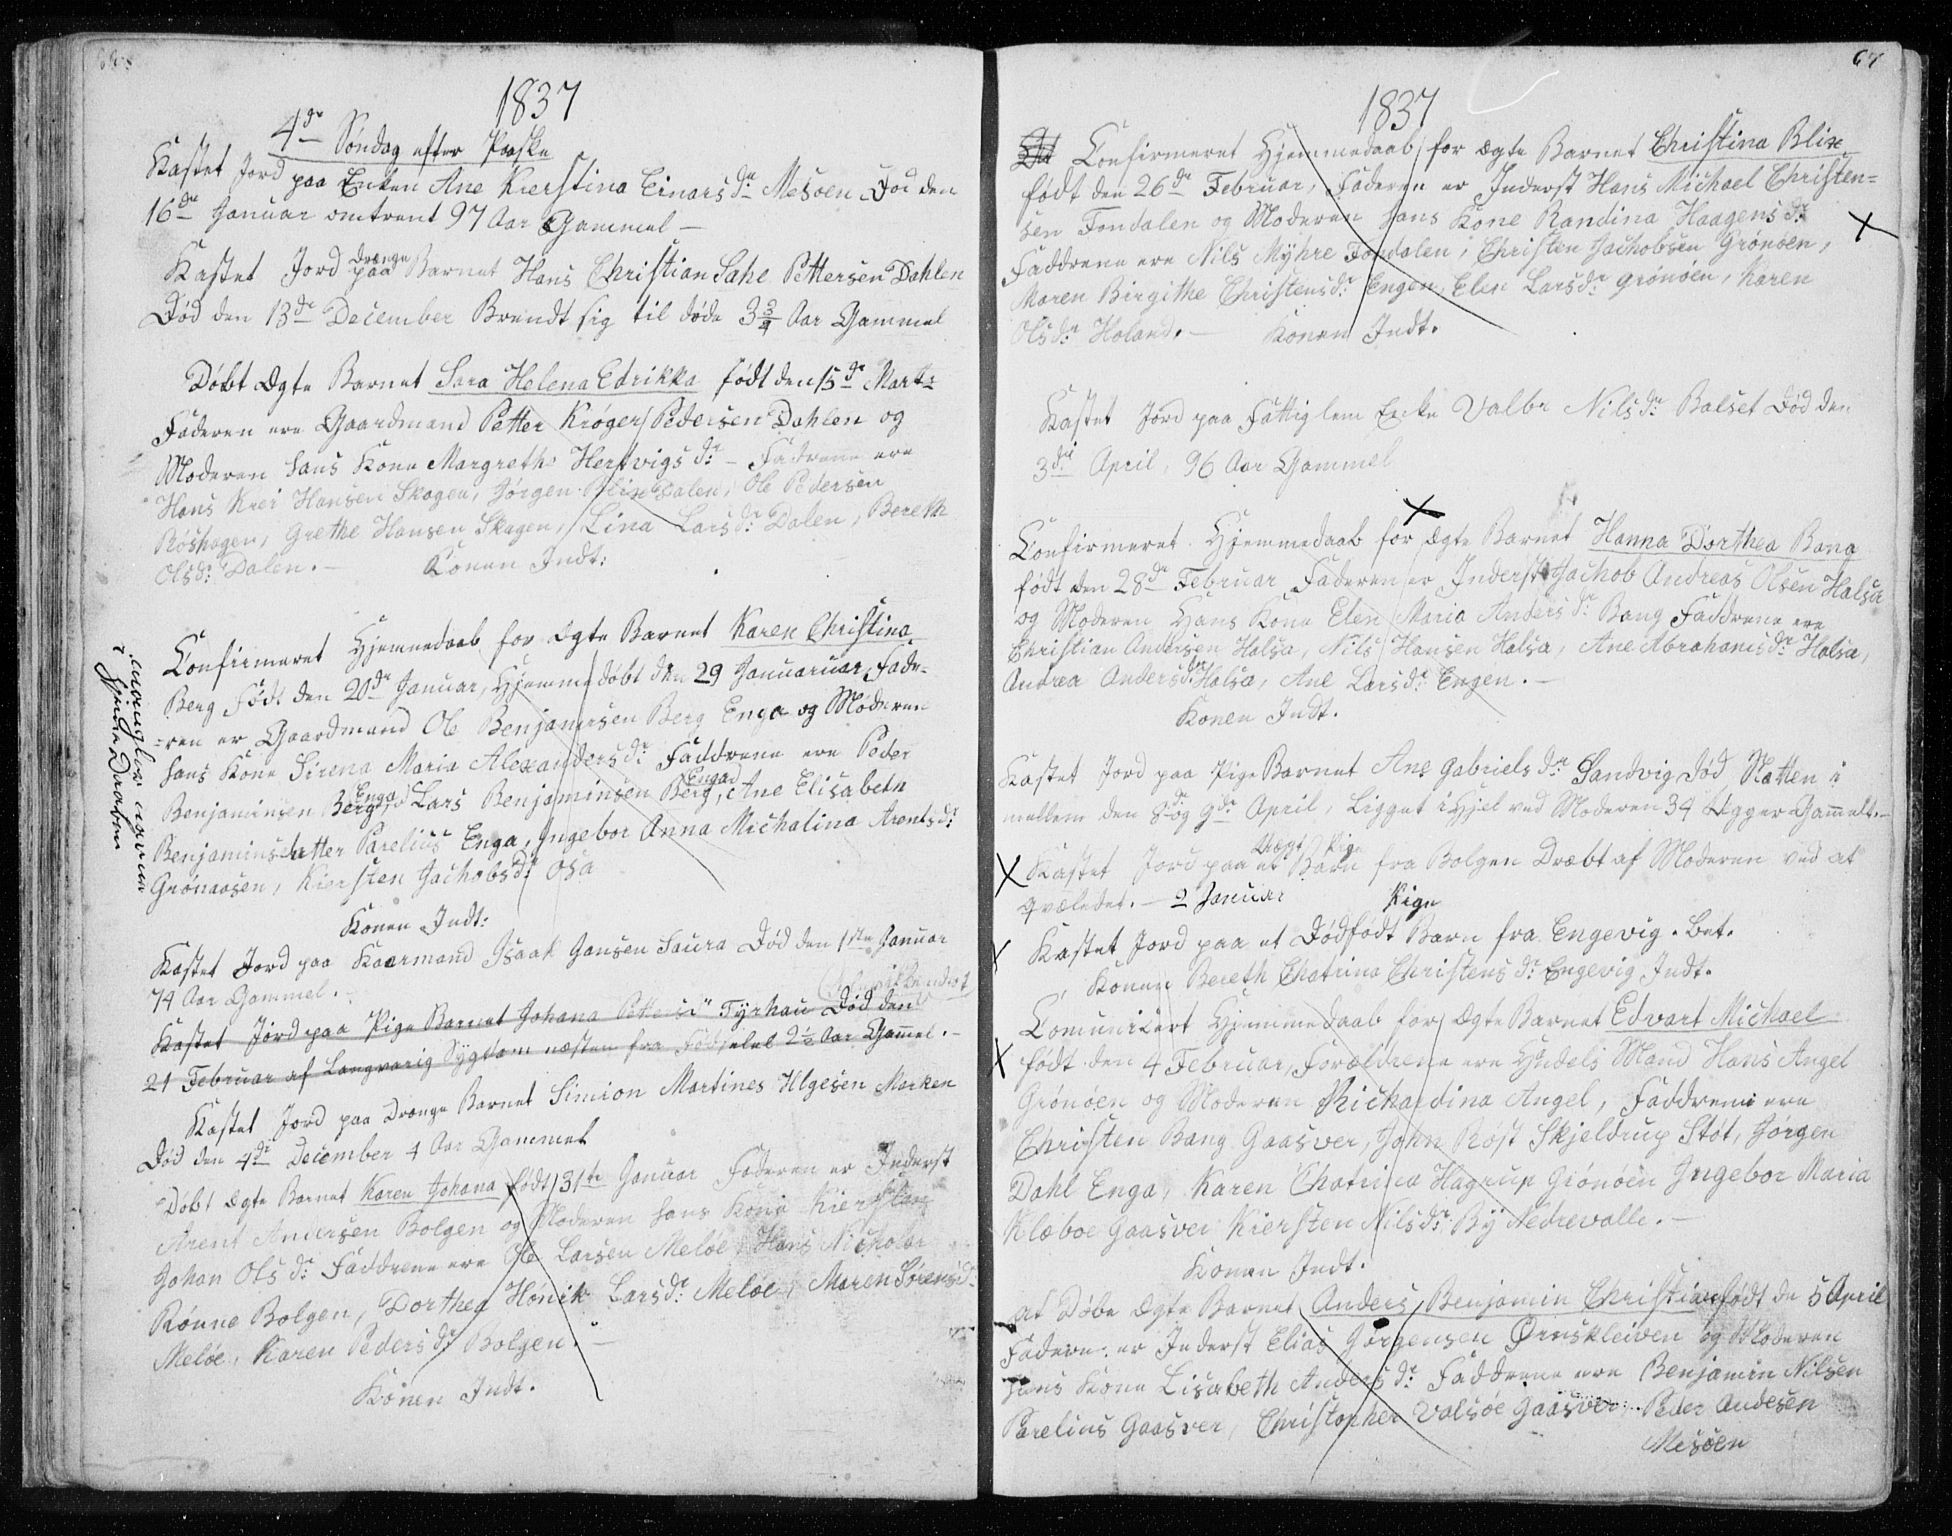 1837
4de Søndag efter Paaske
Kastet Jord paa Enken Ane Kierstina Einarsdr Mesøen Død den
16de Januar omtrent 97 Aar Gammel —
Kastet Jord paa Drenge Barnet Hans Christian Sahl Pettersen Dahlen
Død den 13de December Brendt sig til døde 3 3/4 Aar Gammel
Døbt Ægte Barnet Sara Helena Edrikka født den 15de Marts
Faderen ere Gaardmand Petter Krøger Pedersen Dahlen og
Moderen hans Kone Margrethe Hertvigsdr – Fadrene ere
Hans Hansen Skagen, Jørgen Blix Dalen, Ole Pedersen
Røshagen, Grethe Hansen Skagen, Lina Larsdr Dalen, Bereth
Olsdr Dalen. – Konen Indt:
Confirmeret Hjemmedaab for Ægte Barnet Karen Christina
Berg Født den 20de Januar, Hjemme døbt den 29 Januaruar, Fade-
=ren er Gaardmand Ole Benjaminsen Berg Enga og Moderen
hans Kone Sirena Maria Alexandersdr Faddrene ere Peder
Benjaminsen Berg Enga, Lars Benjaminsen Berg Enga, Ane Elisabeth
Benjaminsdatter Parelius Enga, Ingebor Anna Michalina Arentsdr
Grønaasen, Kiersten Jachobsdr Osa
Konen Indt:
Kastet Jord paa Kaarmand Isaak Jansen Saura Død den 1ste Januar
74 Aar Gammel. –
Kastet Jord paa Pige Barnet Johana Tyrhau Død den
21 Februar af Langvarig Sygdom næsten fra Fødselel 2 1/2 Aar Gammel. –
Kastet Jord paa Drenge Barnet Simion Martines Ilgesen Marken
Død den 4de December 4 Aar Gammel
Døbt Ægte Barnet Karen Johana født 31te Januar Faderen er Inderst
Arent Andersen Bolgen og Moderen hans Kone Kiersten
Johan Olsdr Faddrene ere Ole Larsen Meløe, Hans Nicholai
Rønne Bolgen, Dorthea Hønik Larsdr Meløe, Maren Sørensdr
Meløe, Karen Pedersdr Bolgen. –
Konen Indt.
67
1837
Confirmeret Hjemmedaab for Ægte Barnet Christina Blix
født den 26de Februar, Faderen er Inderst Hans Michael Christen=
sen Fondalen og Moderen hans Kone Randina Haagensdr
Faddrene ere Nils Myhre Fondalen, Christen Jachobsen Grønøen,
Maren Birgithe Christensdr Engen, Elen Larsdr Grønøen, Karen
Olsdr Holand. – Konen Indt.
Kastet Jord paa Fattiglem Enke Valbr Nilsdr Balset Død den
3die April, 96 Aar Gammel
Confirmeret Hjemmedaab for Ægte Barnet Hanna Dorthea Bang
født den 28de Februar Faderen er Inderst Jachob Andreas Olsen Halsa
og Moderen Hans Kone Elen Maria Andersdr Bang Faddrene ere
Christian Andersen Halsa, Nils Hansen Halsa, Ane Abrahamsdr Halsa,
Andrea Andersdr Halsa, Ane Larsdr Engen. –
Konen Indt.
Kastet Jord paa Pige Barnet Ane Gabrielsdr Sandvig Død Natten i
mellem den 8de og 9de April, Ligget ihjel ved Moderen 34 Uger Gammelt. –
Kastet Jord paa et Uægt Pige Barn fra Bolgen Dræbt af Moderen ved at
qvæledet. – 2 Januar
Kastet Jord paa et Dødfødt Pige Barn fra Engevig. Bet.
Konen Bereth Chatrina Christensdr Engevig Indt.
Comunicert Hjemmedaab for Ægte Barnet Edvart Michael
født den 4 Februar, Forældrene ere Hindels Mand Hans Angel
Grønøen og Moderen Richardina Angel, Faddrene ere
Christen Bang Gaasver, John Røst Skjeldrup Støt, Jørgen
Dahl Enga, Karen Chatrina Hagrup Grønøen Ingebor Maria
Klæboe Gaasver Kiersten Nilsdr By Nedrevalle. –
Konen Indt.
at Døbe Ægte Barnet Anders Benjamin Christian født de 5 April
Faderen er Inderst Elias Jørgensen Ørnskleiven og Moderen
hans Kone Lisabeth Andersdr Faddrene ere Benjamin Nilsen
Parelius Gaasver, Christopher Valsøe Gaasver, Peder Andesen
Mesøen